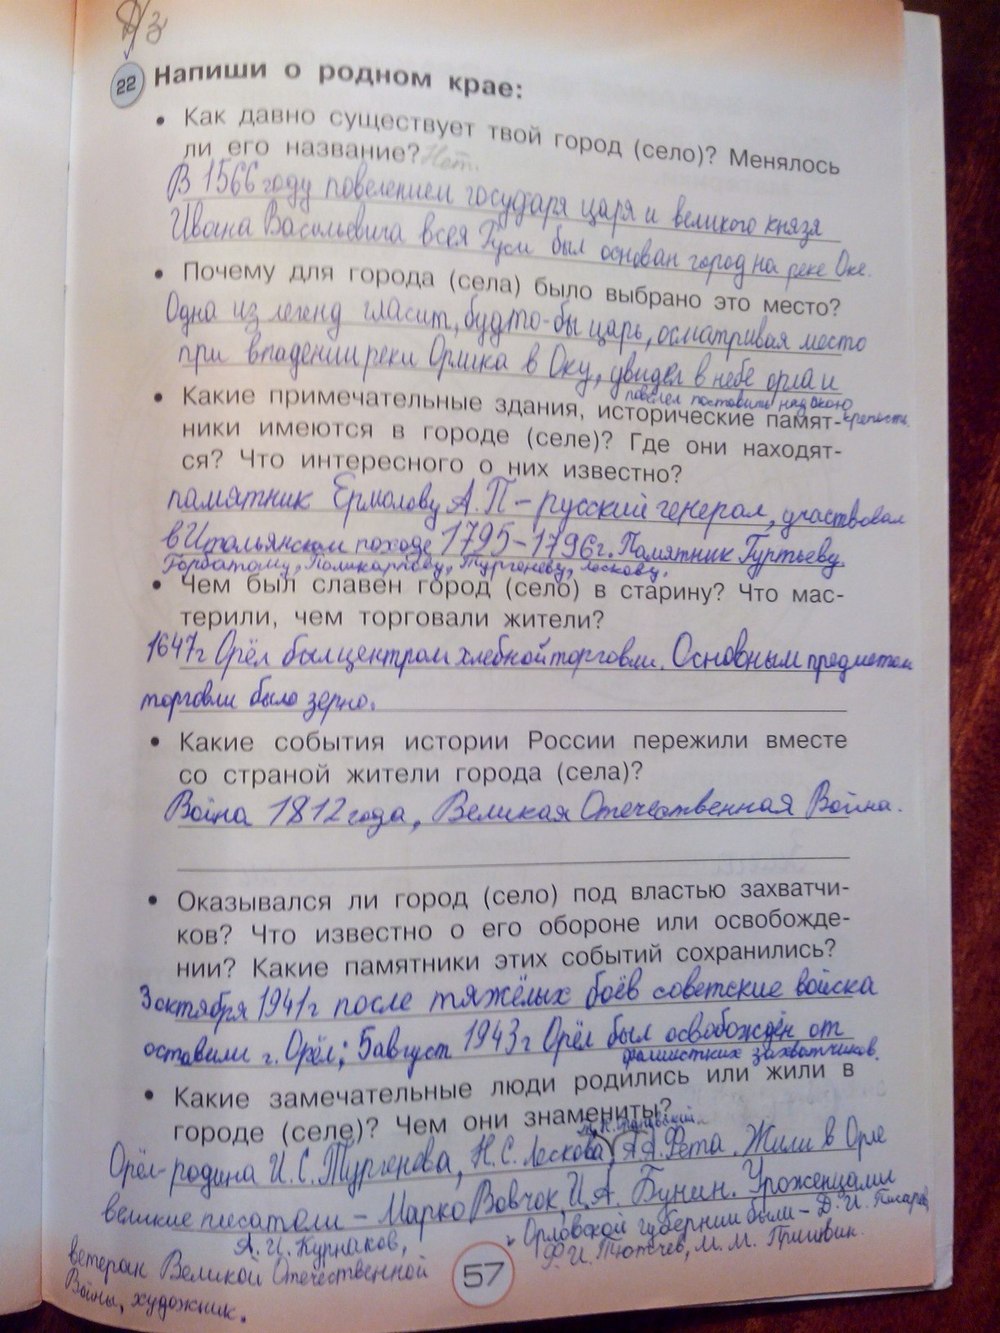 Д/з
22 Напиши о родном крае:
• Как давно существует твой город (село)? Менялось
ли его название? Нет.
В 1566 году повелением государя царя и великого князя
Ивана Васильевича всея Руси был основан город на реке Оке.
• Почему для города (села) было выбрано это место?
Одна из легенд гласит, будто-бы царь, осматривая место
при впадении реки Орлика в Оку, увидел в небе орла и
повелел поставить над Окою
крепость.
• Какие примечательные здания, исторические памят-
ники имеются в городе (селе)? Где они находят-
ся? Что интересного о них известно?
памятник Ермолову А.П – русский генерал, участвовал
в Итальянском походе 1795–1796г. Памятник Гуртьеву,
Горбатому, Поликарпову, Тургеневу, Лескову.
• Чем был славен город (село) в старину? Что мас-
терили, чем торговали жители?
1647г Орёл был центром хлебной торговли. Основным предметом
торговли было зерно.
• Какие события истории России пережили вместе
со страной жители города (села)?
Война 1812 года, Великая Отечественная Война.
• Оказывался ли город (село) под властью захватчи-
ков? Что известно о его обороне или освобожде-
нии? Какие памятники этих событий сохранились?
3 октября 1941г после тяжёлых боёв советские войска
оставили г. Орёл; 5 август 1943г Орёл был освобождён от
фашистких захватчиков.
• Какие замечательные люди родились или жили в
городе (селе)? Чем они знамениты?
Орёл-родина И.С. Тургенева, Н.С. Лескова, А.А. Фета. Жили в Орле
великие писатели – Марко Вовчок, И.А. Бунин. Уроженцами
Орловской губернии были – Д.И. Писарев,
Ф.И. Тютчев, М.М. Пришвин.
А.И. Курнаков,
ветеран Великой Отечественной
Войны, художник.
57